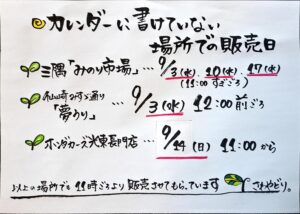 カレンダーに書けていない
場所での販売日
三隅「みのり市場」…9/3(水)、10(水)、17(水)
(11:00すぎごろ)
仙崎みすゞ通り
「夢うり」…9/3(水) 12:00前ごろ
ホンダカーズ光東長門店…9/14(日) 11:00から
以上の場所でも11時ごろより販売させてもらっています